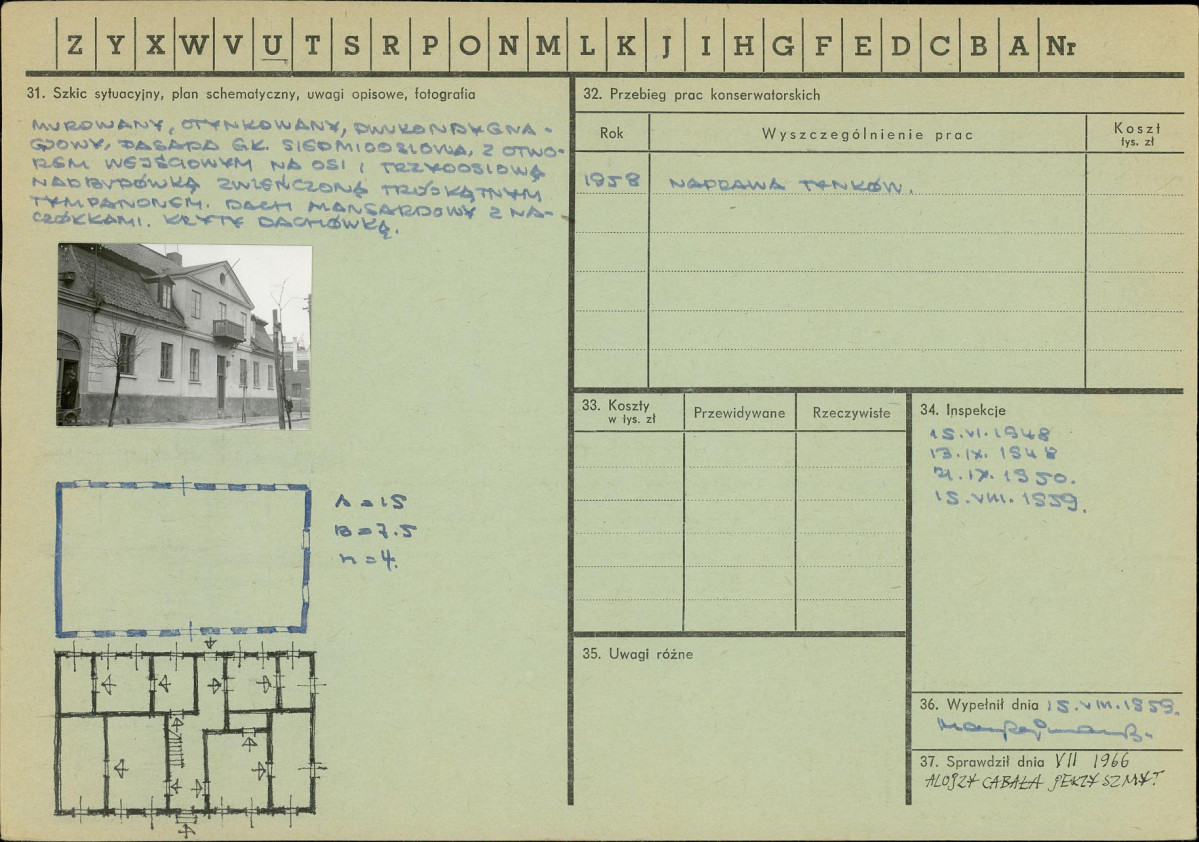 Z Y X W V U T S R P O N M L K J I H G F E D C B A Nr
31. Szkic sytuacyjny, plan schematyczny, uwagi opisowe, fotografia
MUROWANY, OTYNKOWANY, DWUKONDYGNA-
CJOWY, FASADA GŁ. SIEDMIOOSIOWA, Z OTWO-
REM WEJŚCIOWYM NA OSI I TRZYOSIOWĄ
NADBUDÓWKĄ ZWIEŃCZONĄ TRÓJKĄTNYM
TYMPANONEM. DACH MANSARDOWY Z NA-
CZÓŁKAMI. KRYTY DACHÓWKĄ.
A = 15
B = 7.5
n = 4.
32. Przebieg prac konserwatorskich
Rok
Wyszczególnienie prac
Koszt
tys. zł
1958 NAPRAWA TYNKÓW.
33. Koszty
w tys. zł
Przewidywane
Rzeczywiste
34. Inspekcje
15.VI.1948
13.IX.1948
21.IX.1950.
15.VIII.1959.
35. Uwagi różne
36. Wypełnił dnia 15.VIII.1959.
37. Sprawdził dnia VII 1966
ALOJZY CABAŁA JERZY SZMYT